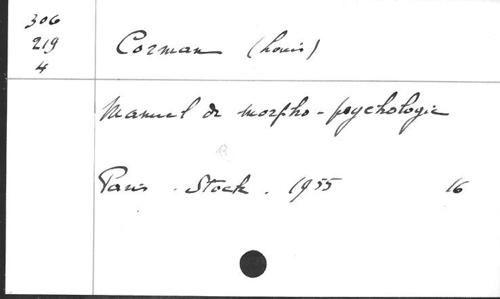 306
219
4
Corman (Louis)
Manuel de morpho-psychologie
Paris. Stock. 1955 16